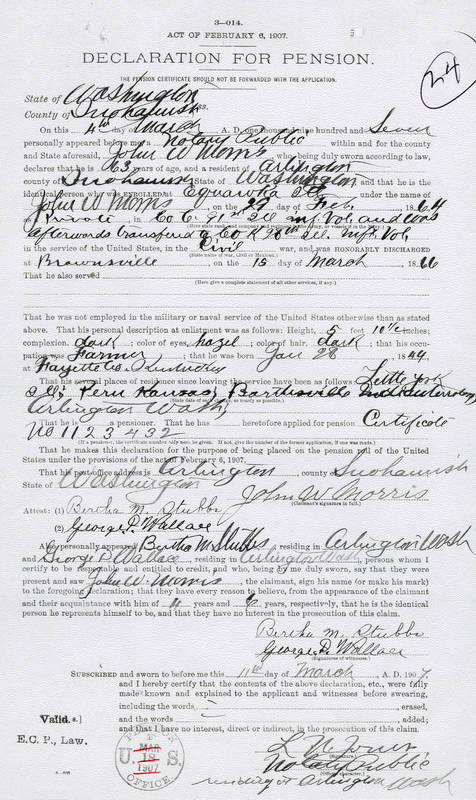 3—014.
ACT OF FEBRUARY 6, 1907.
DECLARATION FOR PENSION.
24
THE PENSION CERTIFICATE SHOULD NOT BE FORWARDED WITH THE APPLICATION.
State of Washington
County of Snohomish ss.
On this 4th day of March A. D. one thousand nine hundred and Seven
personally appeared before me a Notary Public within and for the county
and State aforesaid, John W Morris who, being duly sworn according to law,
declares that he is 63 years of age, and a resident of Arlington
county of Snohomish State of Washington and that he is the
identical person who was ENROLLED at under the name of
John W Morris on the 29 day of Feb, 1864
Private in Co C. 71st Ill inf. Vol and was
(Here state rank, and company and regiment in the Army, or vessels if in the Navy.)
afterwards transfered to Co K 28th Ill. Inft Vol
in the service of the United States, in the Civil war, and was HONORABLY DISCHARGED
(State name of war, civil or Mexican.)
at Brownsville, on the 15 day of March 1866
That he also served
(Here give a complete statement of all other services, if any.)
That he was not employed in the military or naval service of the United States otherwise than as stated
above. That his personal description at enlistment was as follows: Height, 5 feet 10 1/2 inches;
complexion, dark; color of eyes, hazel; color of hair, dark; that his occu-
pation was Farmer; that he was born Jan 28, 1844
at Fayette Co. Kentucky
That his several places of residence since leaving the service have been as follows Little York
Ills; Peru Kansas; Bartlesville Ind
(State date of each change, as nearly as possible.)
Arlington Wash,
That he is a pensioner. That he has heretofore applied for pension Certificate
No 1123432
(If a pensioner, the certificate number only need be given. If not, give the number of the former application, if one was made.)
That he makes this declaration for the purpose of being placed on the pension roll of the United
States under the provisions of the act of February 6, 1907.
That his post-office address is Arlington, county of Snohomish
State of Washington
John W Morris
(Claimant's signature in full.)
Attest: (1) Bertha M. Stubbs
(2) George P. Wallace
Also personally appeared Bertha M. Stubbs, residing in Arlington Wash
and George P. Wallace, residing in Arlington Wash, persons whom I
certify to be respectable and entitled to credit, and who, being by me duly sworn, say that they were
present and saw John W. Morris, the claimant, sign his name (or make his mark)
to the foregoing declaration; that they have every reason to believe, from the appearance of the claimant
and their acquaintance with him of 4 years and 6 years, respectively, that he is the identical
person he represents himself to be, and that they have no interest in the prosecution of this claim.
Bertha M. Stubbs
George P. Wallace
(Signatures of witnesses.)
SUBSCRIBED and sworn to before me this 11th day of March, A. D. 1907,
and I hereby certify that the contents of the above declaration, etc., were fully
made known and explained to the applicant and witnesses before swearing,
including the words, erased,
and the words, added;
and that I have no interest, direct or indirect, in the prosecution of this claim.
Valid.
E. C. P., Law.
U. S.
MAR
18
1907
OFFICE.
L. N. Jones
(Signature.)
Notary Public
(Official character.)
residing at Arlington Wash